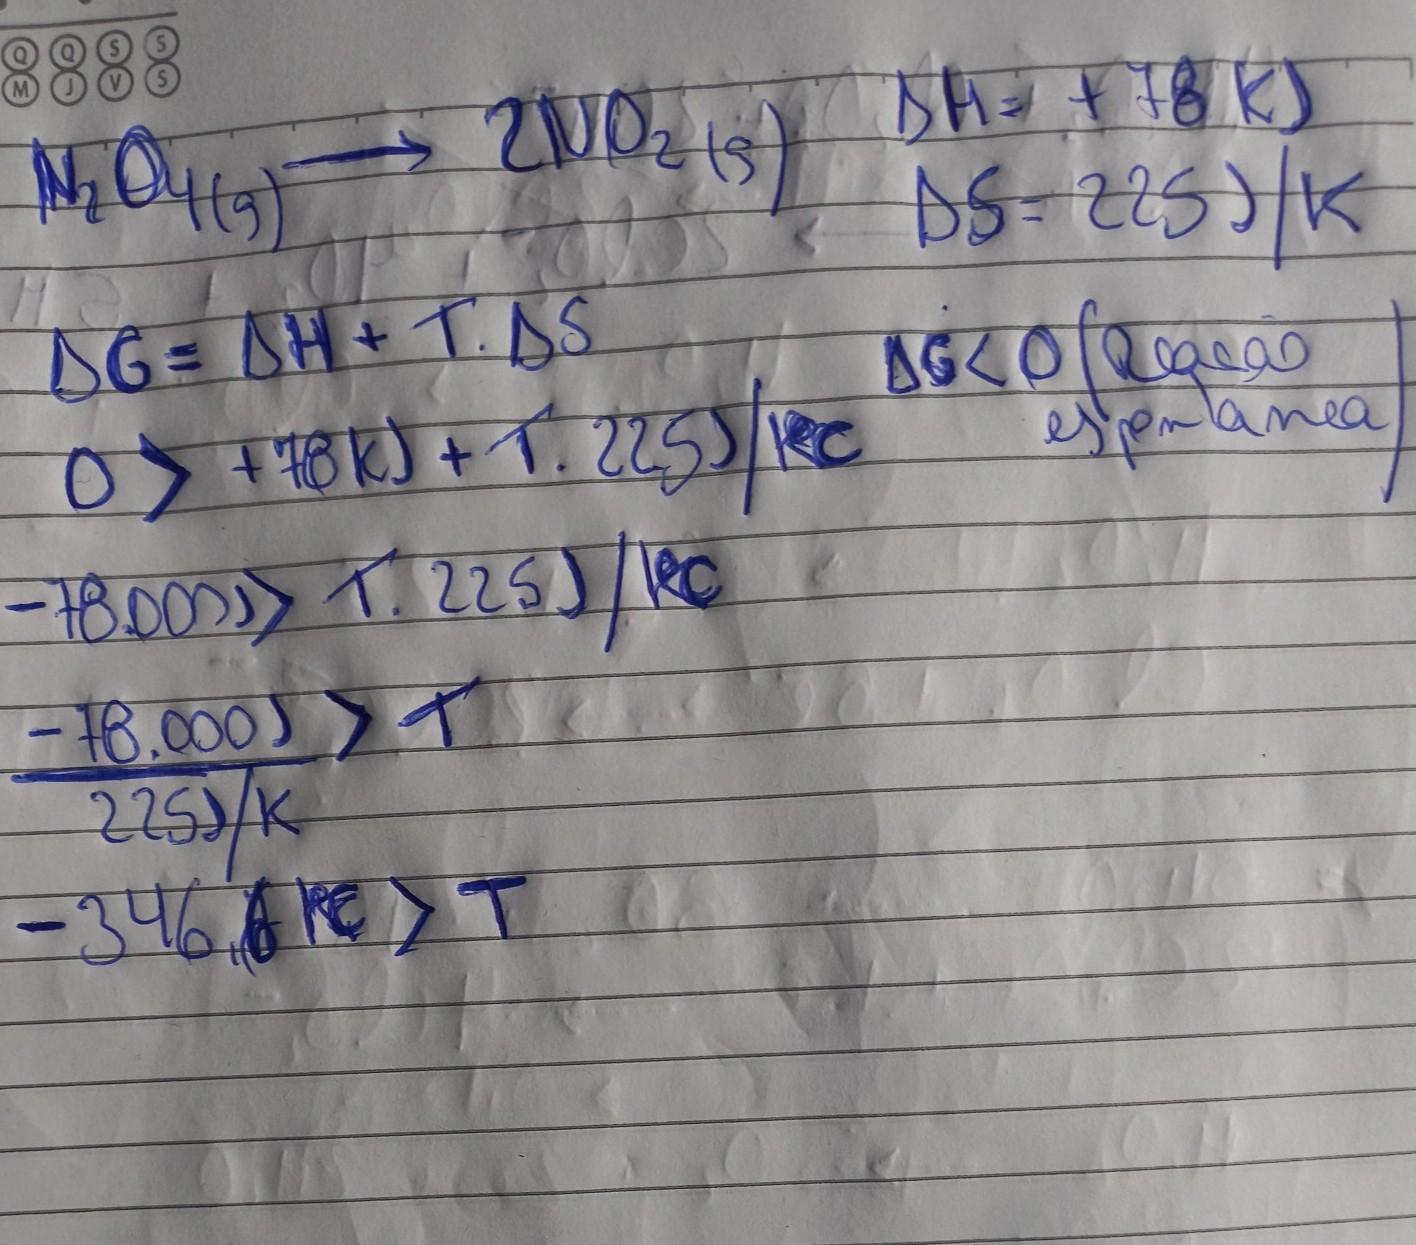 Q Q S S
M J V S
N₂O₄(g) → 2NO₂(g) ΔH= +78 KJ
ΔS= 225J/K
ΔG= ΔH + T.ΔS ΔG<0 (Reação
espontanea)
0 > +78KJ + T. 225J/K
-78.000J > T. 225J/K
-78.000J > T
225J/K
-346,6 K > T